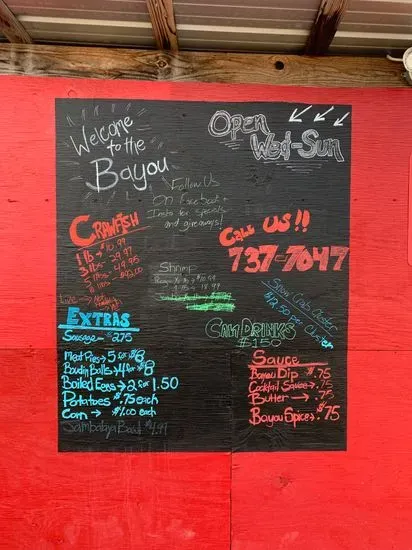 Welcome
to the
Bayou
Open
Wed-Sun
Follow Us
On Facebook +
Insta for specials
and giveaways!
CRAWFISH
1 lb → $10.99
3 lbs - 29.97
5 lbs - 49.95
lbs
Call US!!
737-7047
Snow Crab Cluster
$12.50 per Cluster
Shrimp
18.99
CAN DRINKS
$1.50
EXTRAS
Sausage → $2.75
Meat Pies → 5 for $8
Boudin Balls → 4 for $8
Boiled EGGS → 2 for 1.50
Potatoes $.75 each
Corn → $1.00 each
Jambalaya Bowl $4.99
Sauce
Bayou Dip $.75
Cocktail Sauce → $.75
Butter → .75
Bayou Spice → $.75